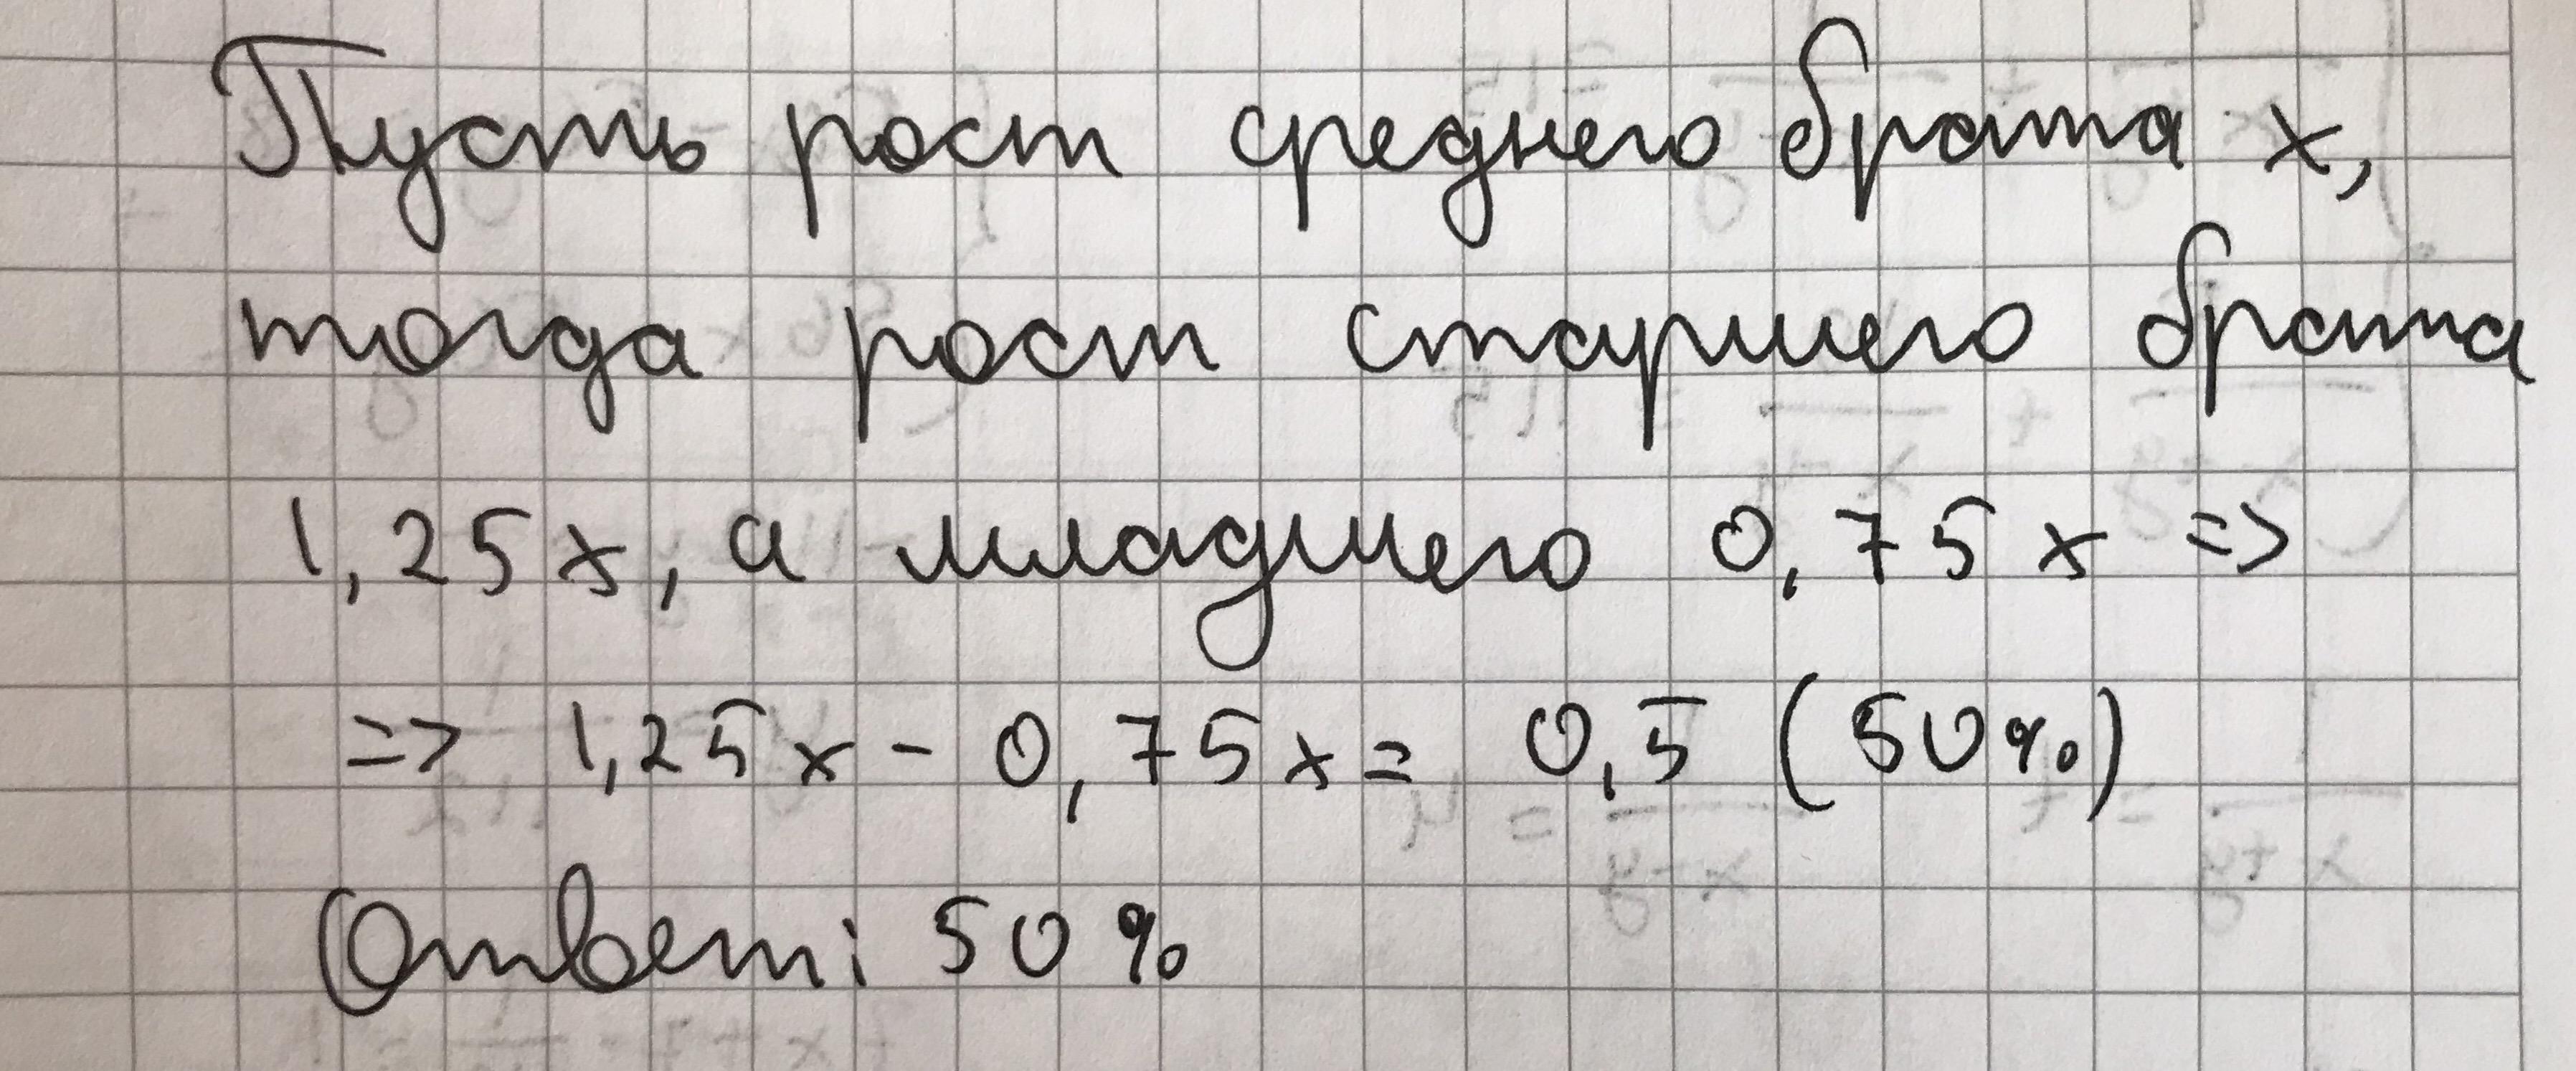 Пусть рост среднего брата x,
тогда рост старшего брата
1,25x, а младшего 0,75x =>
=> 1,25x - 0,75x = 0,5 (50%)
Ответ: 50%